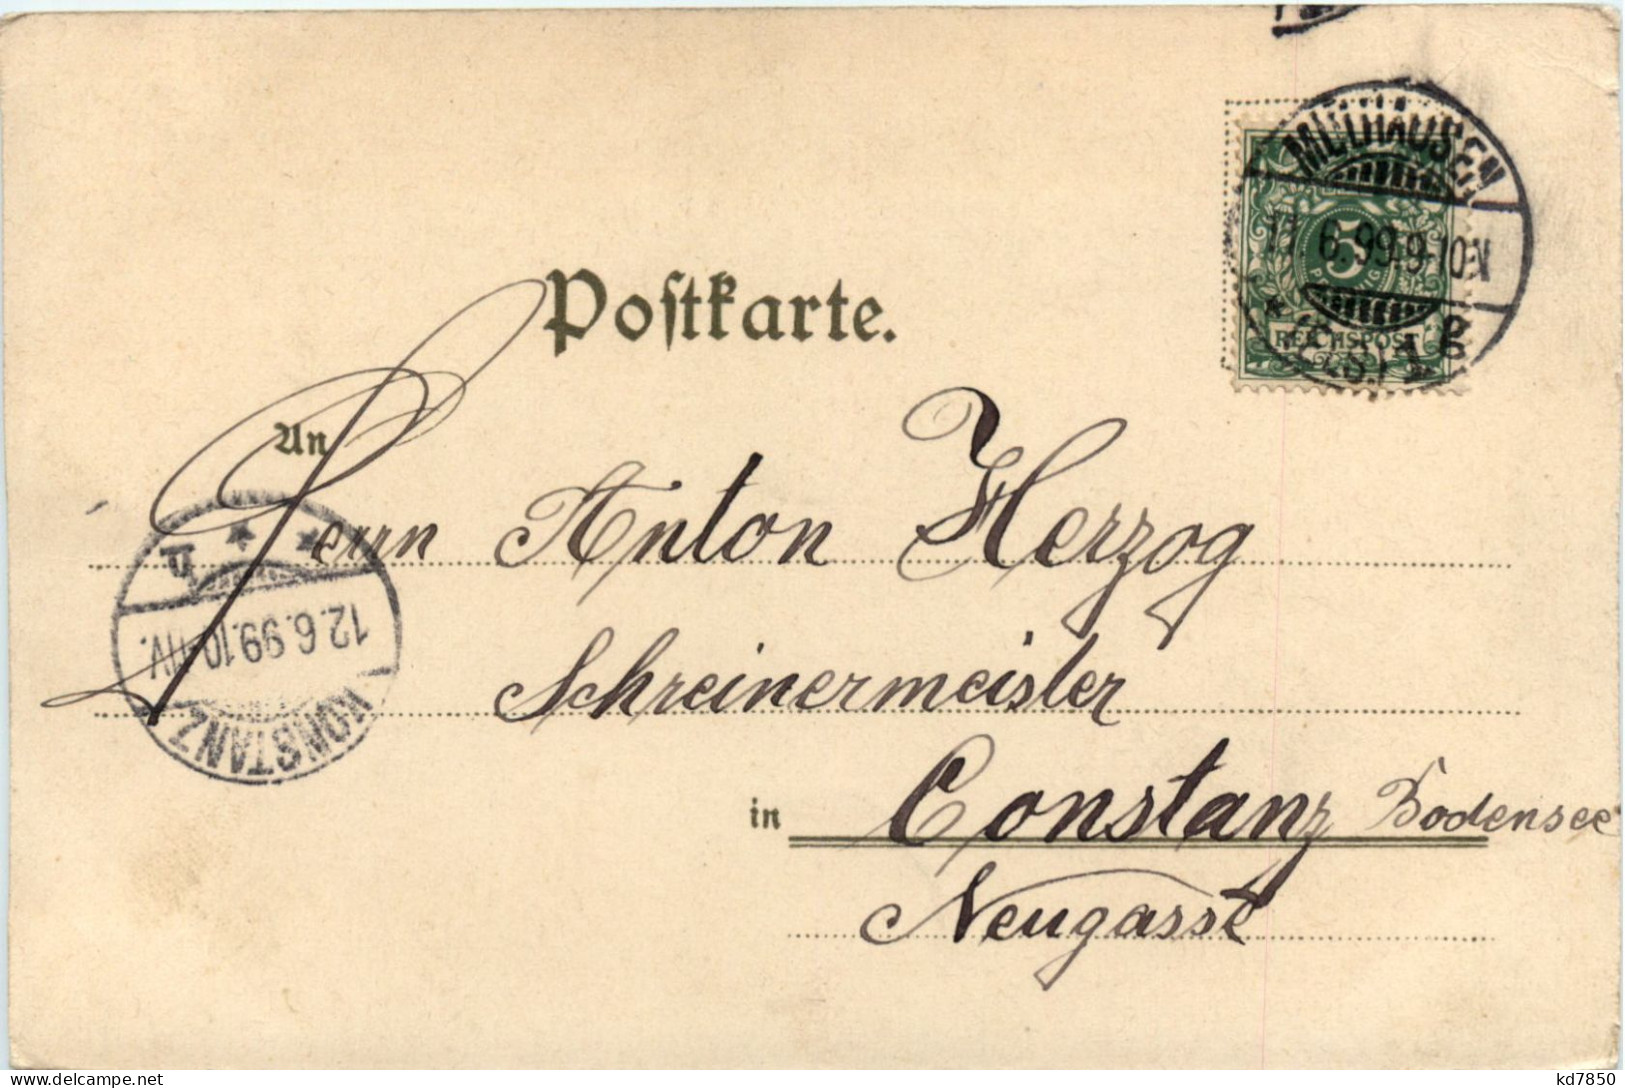 MÜLHAUSEN
11.6.99.9-10N
* (ELS.) 1 g
5
PFENNIG
REICHSPOST
Postkarte.
An
Herrn Anton Herzog
Schreinermeister
in Constanz Bodensee
Neugasse
KONSTANZ
12.6.99.10-11V.
kd7850